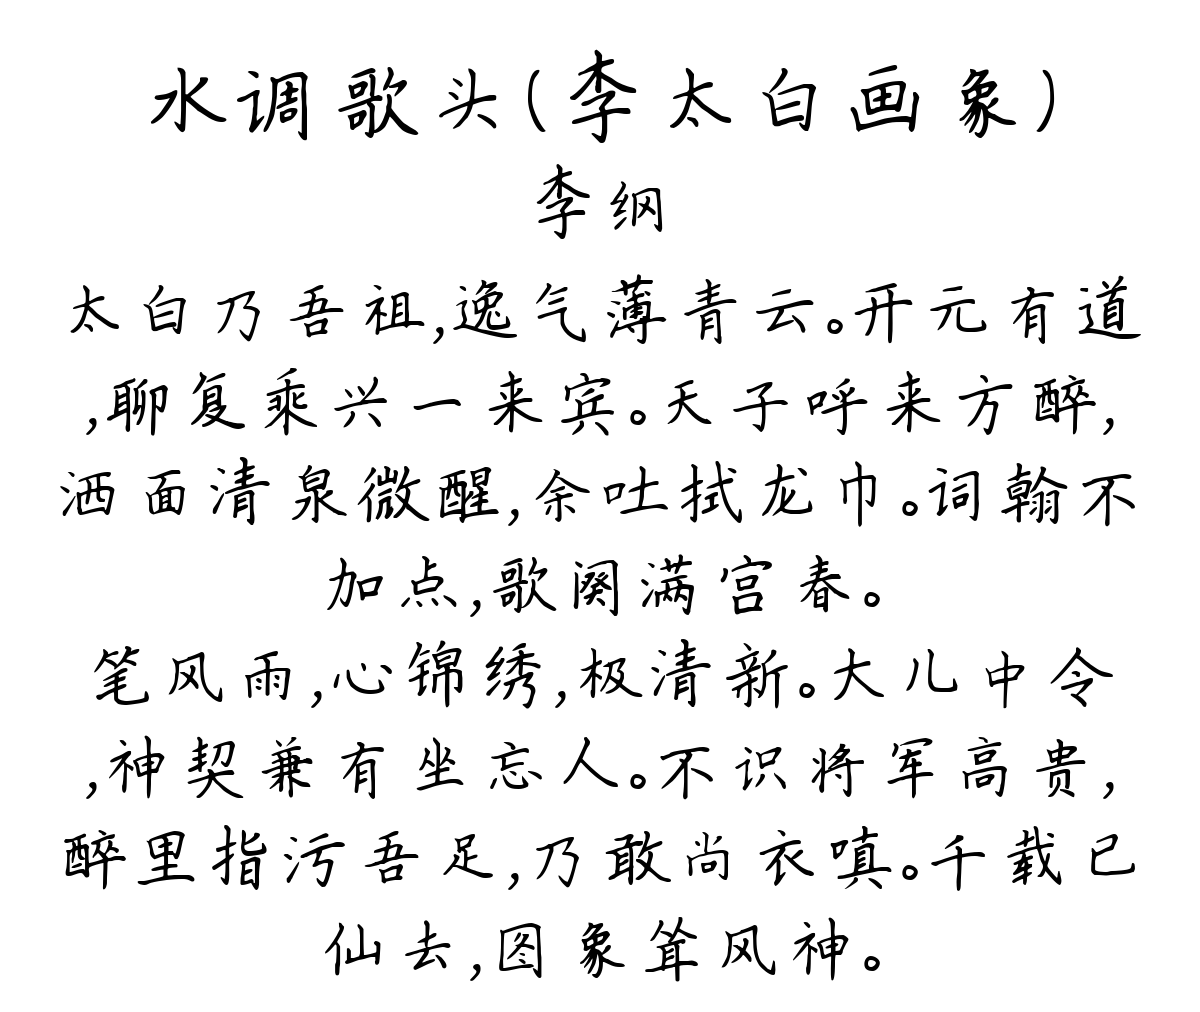 水调歌头(李太白画象)
李纲
太白乃吾祖,逸气薄青云。开元有道
,聊复乘兴一来宾。天子呼来方醉,
洒面清泉微醒,余吐拭龙巾。词翰不
加点,歌阕满宫春。
笔风雨,心锦绣,极清新。大儿中令
,神契兼有坐忘人。不识将军高贵,
醉里指污吾足,乃敢尚衣嗔。千载已
仙去,图象耸风神。